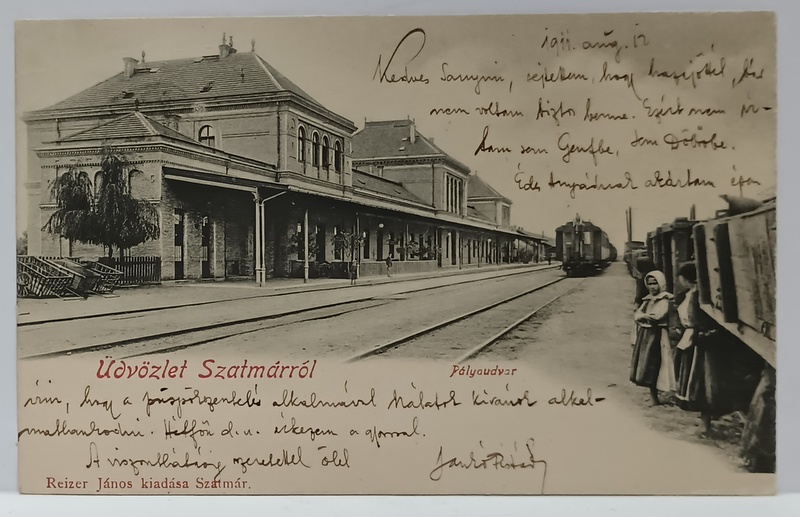 1911. aug. 12
Kedves Sanyim, sejtettem, hogy hazajöttél, bár
nem voltam biztos benne. Ezért nem ír-
tam sem Genfbe, sem Döböbe.
Édes Anyádnak akartam épen
írni, hogy a püspökszentelés alkalmával Nálatok kívánok alkal-
matlankodni. Hétfőn d. u. érkezem a gyorssal.
A viszontlátásig szeretettel ölel
Jankó
Üdvözlet Szatmárról
Pályaudvar
Reizer János kiadása Szatmár.